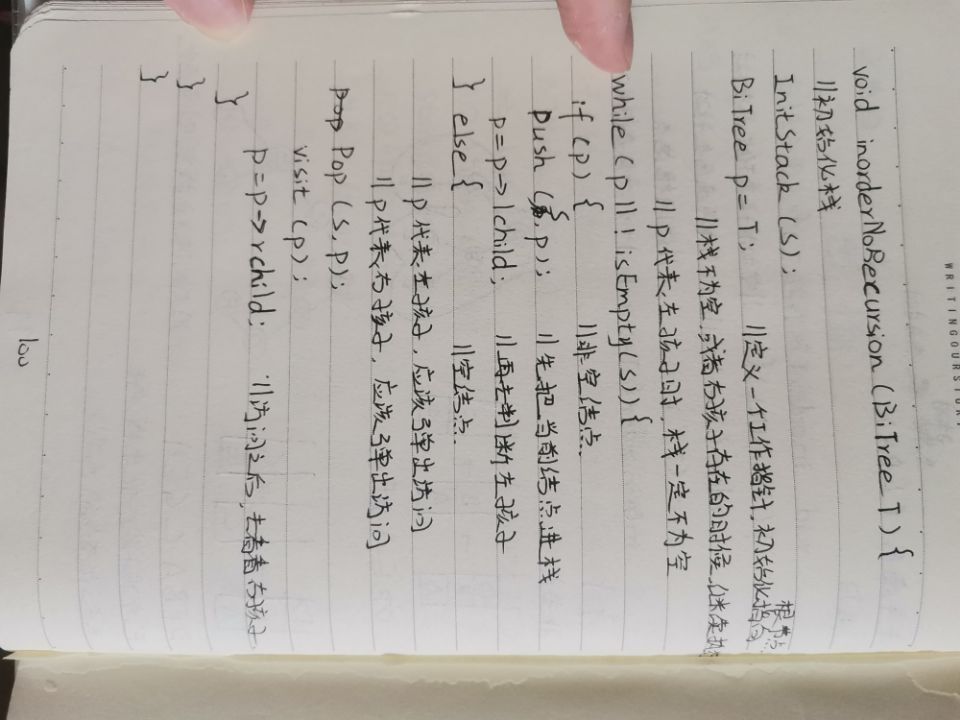 WRITINGOURSTORY
void inorderNoRecursion (BiTree T) {
//初始化栈
InitStack (S);
根节点
BiTree p = T; //定义一个工作指针,初始化指向
//栈不为空,或者右孩子存在的时候,继续执行
//p代表左孩子时,栈一定不为空
while (p || ! isEmpty(S)) {
if (p) { //非空结点.
push (S, p); //先把当前结点进栈
p = p->lchild; //再去判断左孩子
} else { //空结点.
//p代表左孩子,应该弹出访问
//p代表右孩子,应该弹出访问
Pop (S, p);
visit (p);
p = p->rchild; //访问之后,去看看右孩子
}
}
}
100